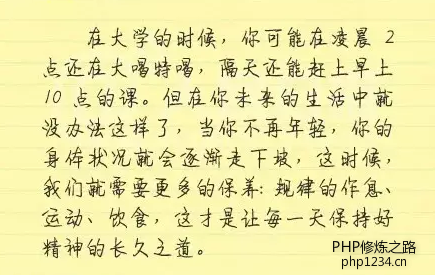 在大学的时候，你可能在凌晨 2
点还在大唱特唱，隔天还能赶上早上
10 点的课。但在你未来的生活中就
没办法这样了，当你不再年轻，你的
身体状况就会逐渐走下坡，这时候，
我们就需要更多的保养：规律的作息、
运动、饮食，这才是让每一天保持好
精神的长久之道。
PHP修炼之路
php1234.cn